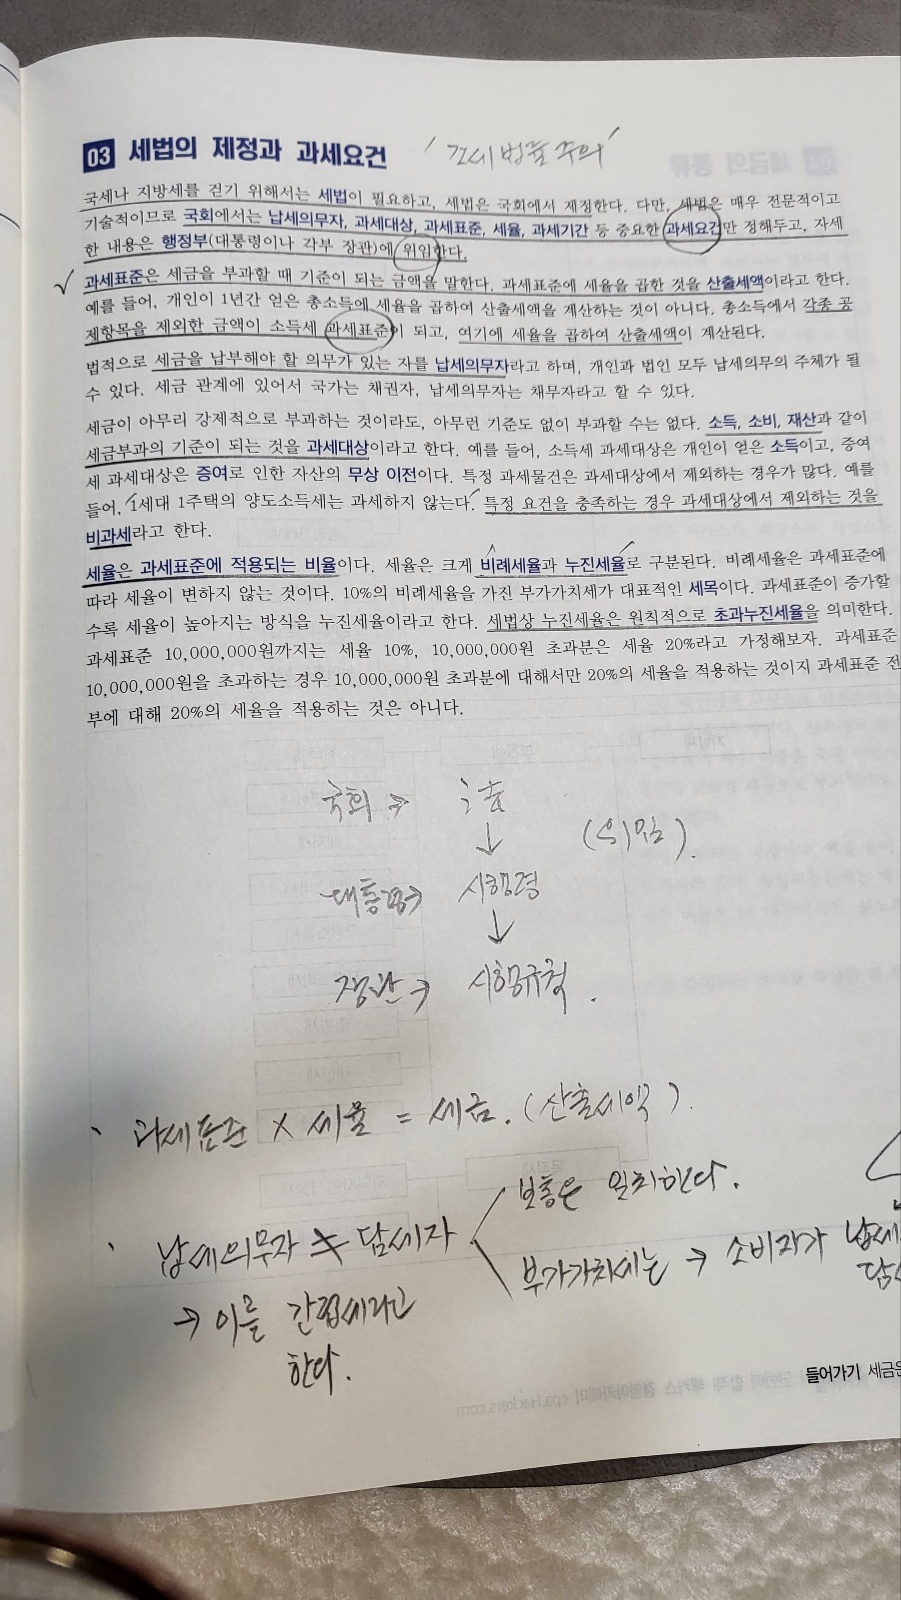 03 세법의 제정과 과세요건 '조세법률주의'
국세나 지방세를 걷기 위해서는 세법이 필요하고, 세법은 국회에서 제정한다. 다만, 세법은 매우 전문적이고
기술적이므로 국회에서는 납세의무자, 과세대상, 과세표준, 세율, 과세기간 등 중요한 과세요건만 정해두고, 자세
한 내용은 행정부(대통령이나 각부 장관)에 위임한다.
과세표준은 세금을 부과할 때 기준이 되는 금액을 말한다. 과세표준에 세율을 곱한 것을 산출세액이라고 한다.
예를 들어, 개인이 1년간 얻은 총소득에 세율을 곱하여 산출세액을 계산하는 것이 아니다. 총소득에서 각종 공
제항목을 제외한 금액이 소득세 과세표준이 되고, 여기에 세율을 곱하여 산출세액이 계산된다.
법적으로 세금을 납부해야 할 의무가 있는 자를 납세의무자라고 하며, 개인과 법인 모두 납세의무의 주체가 될
수 있다. 세금 관계에 있어서 국가는 채권자, 납세의무자는 채무자라고 할 수 있다.
세금이 아무리 강제적으로 부과하는 것이라도, 아무런 기준도 없이 부과할 수는 없다. 소득, 소비, 재산과 같이
세금부과의 기준이 되는 것을 과세대상이라고 한다. 예를 들어, 소득세 과세대상은 개인이 얻은 소득이고, 증여
세 과세대상은 증여로 인한 자산의 무상 이전이다. 특정 과세물건은 과세대상에서 제외하는 경우가 많다. 예를
들어, 1세대 1주택의 양도소득세는 과세하지 않는다. 특정 요건을 충족하는 경우 과세대상에서 제외하는 것을
비과세라고 한다.
세율은 과세표준에 적용되는 비율이다. 세율은 크게 비례세율과 누진세율로 구분된다. 비례세율은 과세표준에
따라 세율이 변하지 않는 것이다. 10%의 비례세율을 가진 부가가치세가 대표적인 세목이다. 과세표준이 증가할
수록 세율이 높아지는 방식을 누진세율이라고 한다. 세법상 누진세율은 원칙적으로 초과누진세율을 의미한다.
과세표준 10,000,000원까지는 세율 10%, 10,000,000원 초과분은 세율 20%라고 가정해보자. 과세표준
10,000,000원을 초과하는 경우 10,000,000원 초과분에 대해서만 20%의 세율을 적용하는 것이지 과세표준 전
부에 대해 20%의 세율을 적용하는 것은 아니다.
국회 →
↓ (위임).
대통령 → 시행령
↓
장관 → 시행규칙.
· 과세표준 × 세율 = 세금. (산출세액).
보통은 일치한다.
· 납세의무자 ≠ 담세자
부가가치세는 → 소비자가 납세
담세
→ 이를 간접세라고
한다.
들어가기 세금은